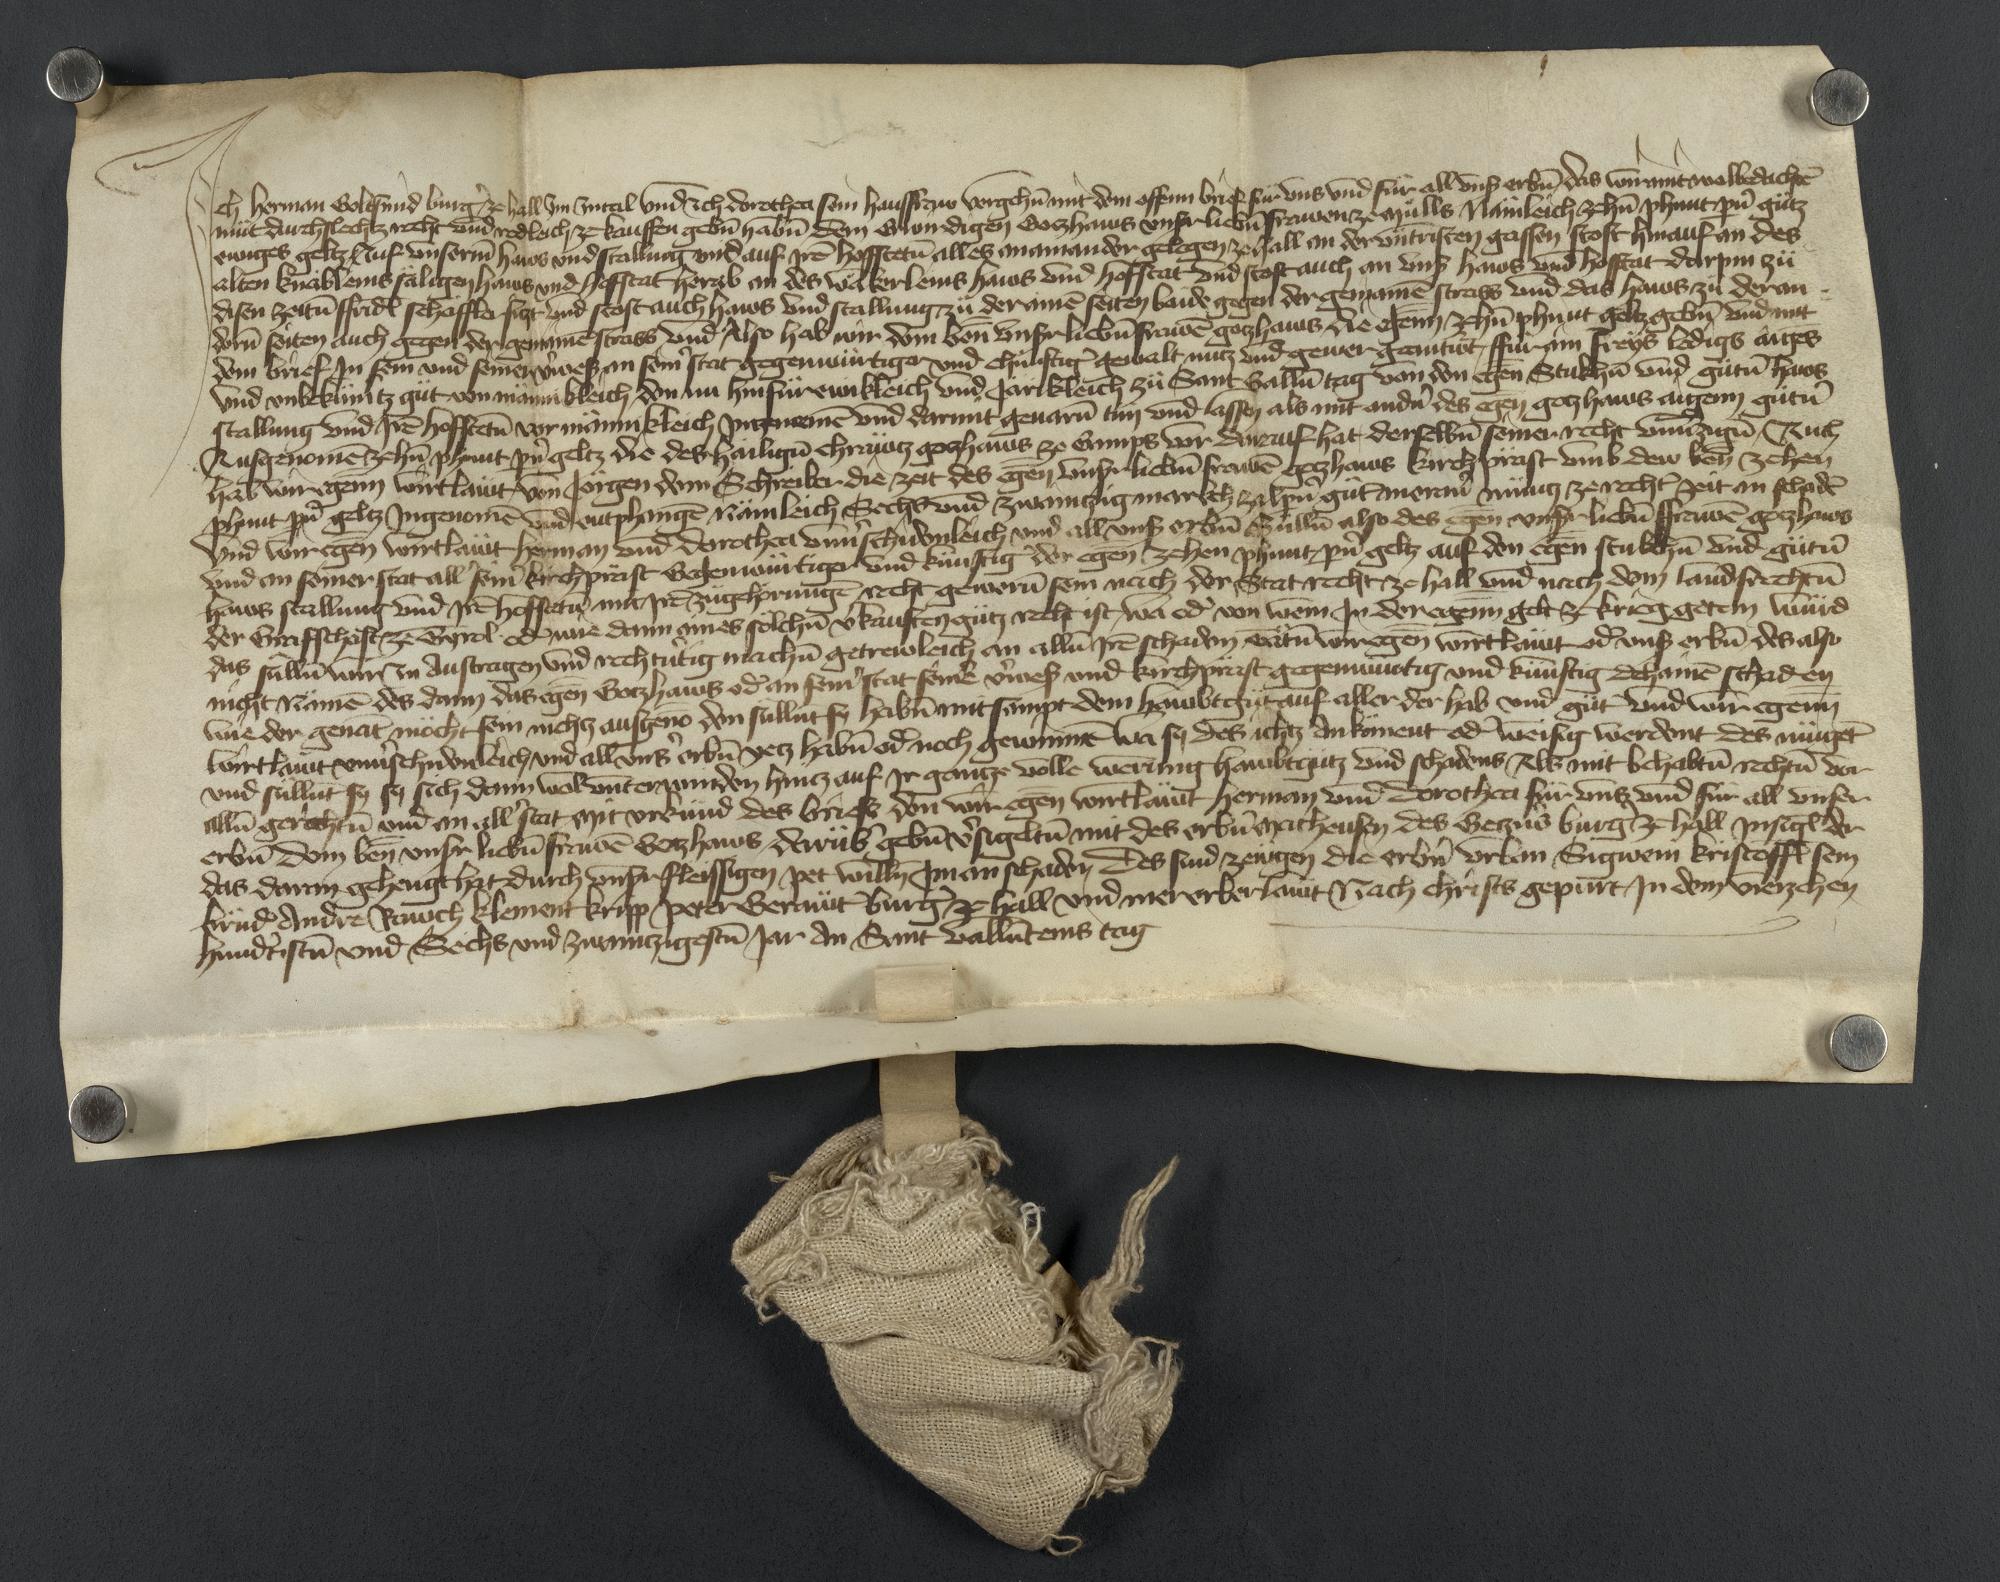 Ich herman Goltsmid burger ze hall Im Intal vnd Ich dorothea sein hausfraw veriehen mit dem offenn brief für vns vnd für all vnser erben das wir mit wolbedachtem
müt durchslechtz recht vnd redleich ze kauffen geben haben dem Erwirdigen Gotzhaws vnser lieben frawen ze Mülls Nämleich zehn phunt perner gütz
ewiges geltz Auf vnserm haws vnd stallung vnd auf Iren hoffsteten alles an ainander gelegen ze hall an der vntristen gassen stost hinauf an des
alten knäbleins säligen haws vnd hoffstat herab an des wäkerleins haws vnd hoffstat vnd stost auch an vnser haws vnd hoffstat darynn zü
disen zeiten ffridl schäffler sitzt vnd stost auch haws vnd stallung zü der ainen seiten baide gegen der gemainen strass vnd das haws zü der an
dern seiten auch gegen der gemainen strass vnd Also hab wir dem ben vnser lieben frawen gotzhaws die egenn zehn phunt geltz geben vnd mit
dem brief In sein vnd seiner verweser an seiner stat gegenwürtiger vnd chünftiger gewalt nutz vnd gewer geantwt ffür ain freys ledigs aiges
vnd vnbekümertz güt von männikleich den nu hinfür ewikleich vnd Järikleich zü Sant Gallen tag von den egen Stukhen vnd gütern haws
stallung vnd Iren hoffsteten vor männikleich Inzenemen vnd darmit geuaren tun vnd lassen als mit andern des egen gotzhaws aigenn gütern
Ausgenomen zehn phunt perner geltz die des hailigen chräwtz gotzhaws ze Gamps vor darauf hat derselben seiner recht vnuerzigen Auch
hab wir egenn wirtläwt von Jörgen dem Schreiber die zeit des egen vnser lieben frawen gotzhaws kirchpräst vmb dew ben zehen
phunt perner geltz Ingenomen vnd emphangen Nämleich Sechs vnd zwaintzig march zal perner güter meraner müntz ze rechter zeit an schaden
vnd wir egen wirtläwt herman vnd dorothea vnuerschaidenleich vnd all vnser erben Süllen also des egen vnser lieben ffrawen gotzhaws
vnd an seiner stat all sein kirchpräst Gegenwürtiger vnd künftiger der egen zehen phunt perner geltz auf den egen stukhen vnd gütern
haws stallung vnd Iren hoffsteten mit Iren zügehörungen recht geweren sein nach der Stat recht ze hall vnd nach dem landsrechten
der Grafschäft ze Tyrol oder wie dann aines sölchen verkauften gütz recht ist wa oder von wem In der egenn gelt ze krieg getan würd
das süllen wir In Austragen vnd rechtuertig machen getrewleich an allen Iren schaden täten wir egen wirtläwt oder vnser erben des also
nicht Nämen des dann das egen Gotzhaws oder an seiner stat seine verweser vnd kirchpräst gegenwürtig vnd künftig dehainen schaden
wie der genant möcht sein nichtz ausgeno den süllent sy haben mitsampt dem haubtgüt auf aller der hab vnd güt vnd wir egenn
wirtläwt vnuerschaidenleich vnd all vnser erben yetz haben oder noch gewinnen wa sy des ichtz ankoment oder weisig werdent des mügen
vnd süllent sy sich dann wol vnterwinden hintz auf Ir gantze volle werung haubtgütz vnd schadens Als mit behabten rechten vor
allen gerichten vnd an aller stat Mit vrkund des briefs den wir egen wirtläwt herman vnd dorothea für vns vnd für all vnser
erben dem ben vnser lieben frawen Gotzhaws darüber geben versigelten mit des erbern Matheusen des Getzner burger ze hall Insigl der
das daran gehengt hat durch vnser fleissigen pet willen Im an schaden Des sind zewgen die erbern vrban Sigwein kristoffl sein
brüder Andre Rawch klement kripp peter Geräwt burger ze hall vnd mer erber läwt Nach christs gepürt In dem vierzehen
hundertisten vnd Sechs vnd zwaintzigesten Jar An Sant Vallenteins tag